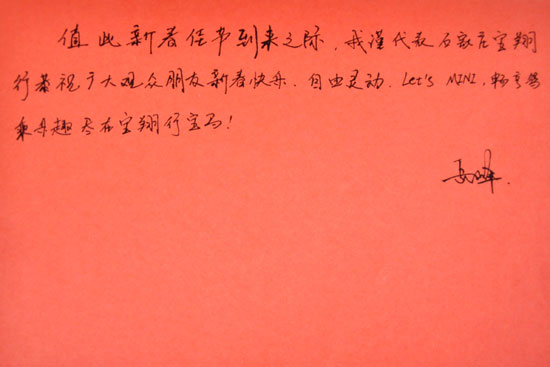 值此新春佳节到来之际，我谨代表石家庄宝翔
行恭祝广大观众朋友新春快乐．自由灵动．Let's MINI，畅享驾
乘乐趣尽在宝翔行宝马！